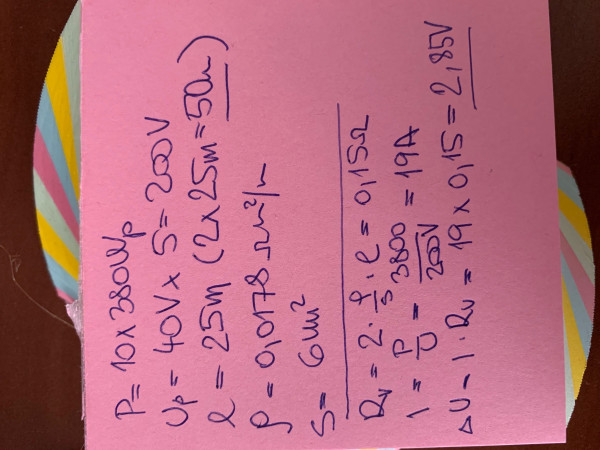 P = 10 x 380 Wp
Up = 40V x 5 = 200V
l = 25m (2 x 25m = 50m)
ρ = 0,0178 Ωm²/m
S = 6 mm²
Rv = 2 · ρ/s · l = 0,15Ω
I = P/U = 3800/200V = 19A
ΔU = I · Rv = 19 x 0,15 = 2,85V